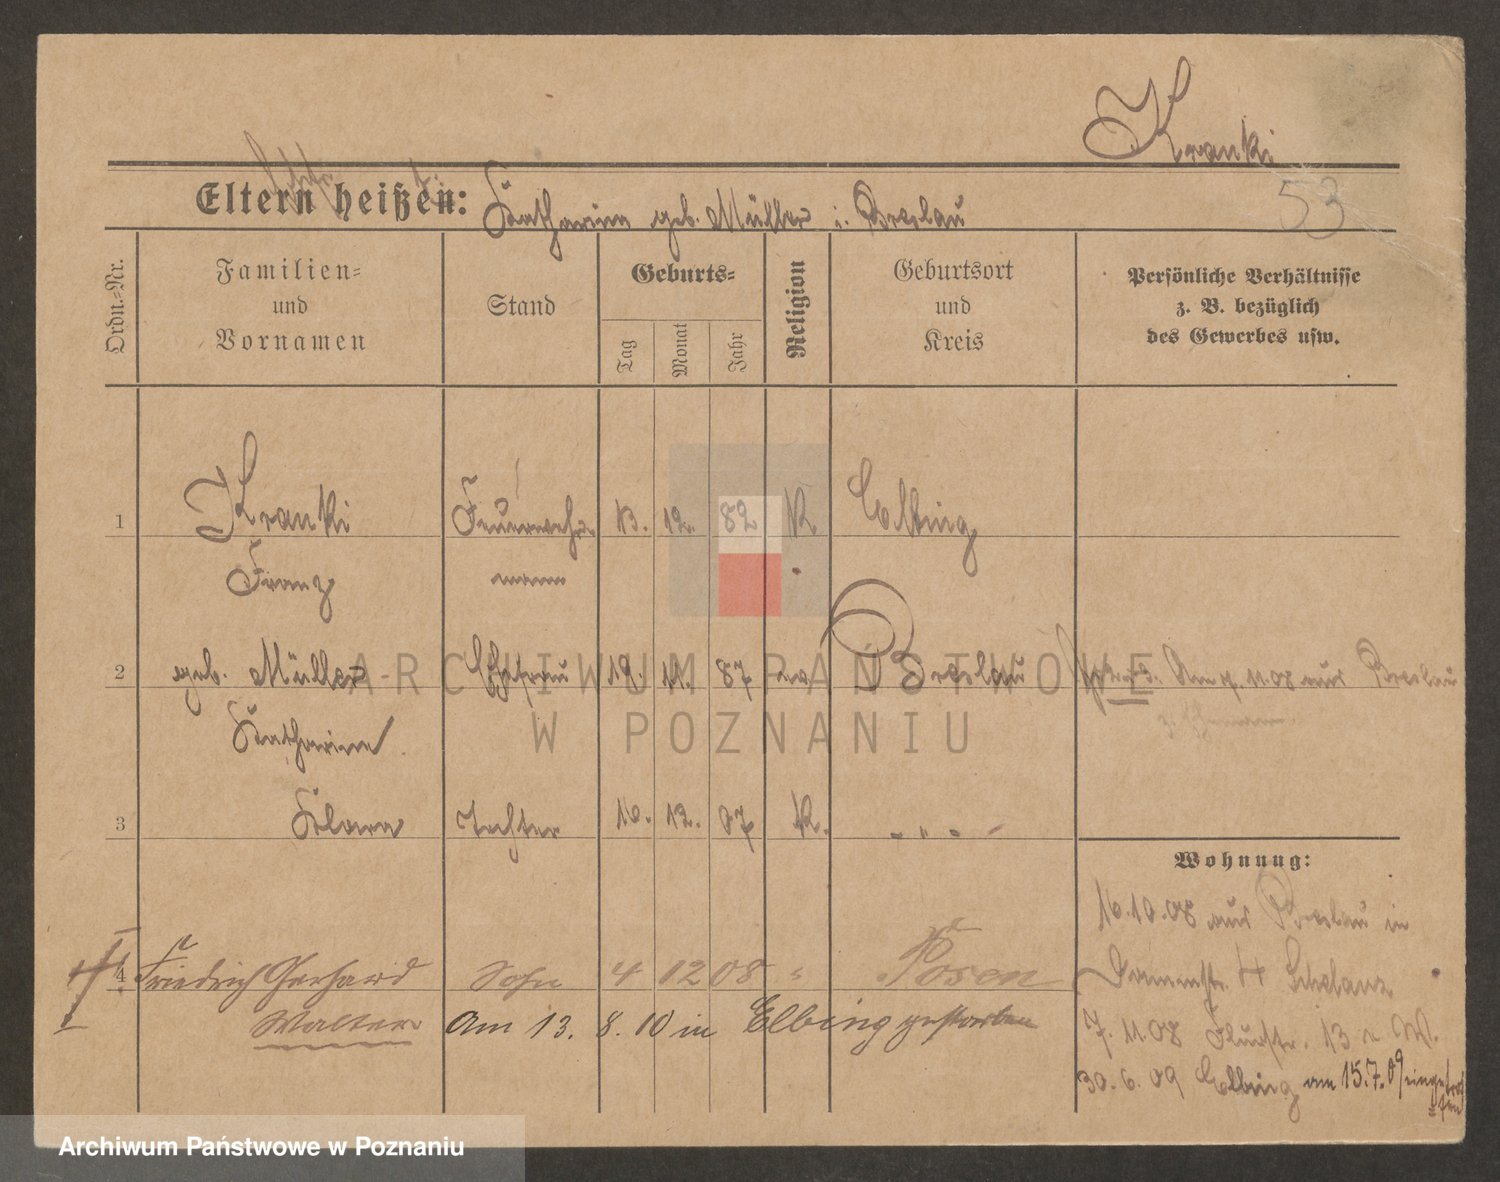 Kranki
Eltern heißen: Katharina geb. Müller i. Breslau
53
Ordn.-Nr.
Familien-
und
Vornamen
Stand
Geburts-
Tag
Monat
Jahr
Religion
Geburtsort
und
Kreis
Persönliche Verhältnisse
z. B. bezüglich
des Gewerbes usw.
1 Kranki Feuerwehr- 13. 12. 82 K Elbing
Franz mann
2 geb. Müller Ehefrau 12. 11. 87 ev Breslau Am 7. 11.08 aus Breslau
Katharina
3 Klara Tochter 16. 12. 07 K. - " -
Wohnung:
16.10.08 aus Breslau in
4 Friedrich Gerhard Sohn 4 12 08 " Posen
Walter Am 13. 8. 10 in Elbing gestorben
7. 11.08 13 W.
30. 6. 09 Elbing am 15.7.09
ARCHIWUM PAŃSTWOWE
W POZNANIU
Archiwum Państwowe w Poznaniu